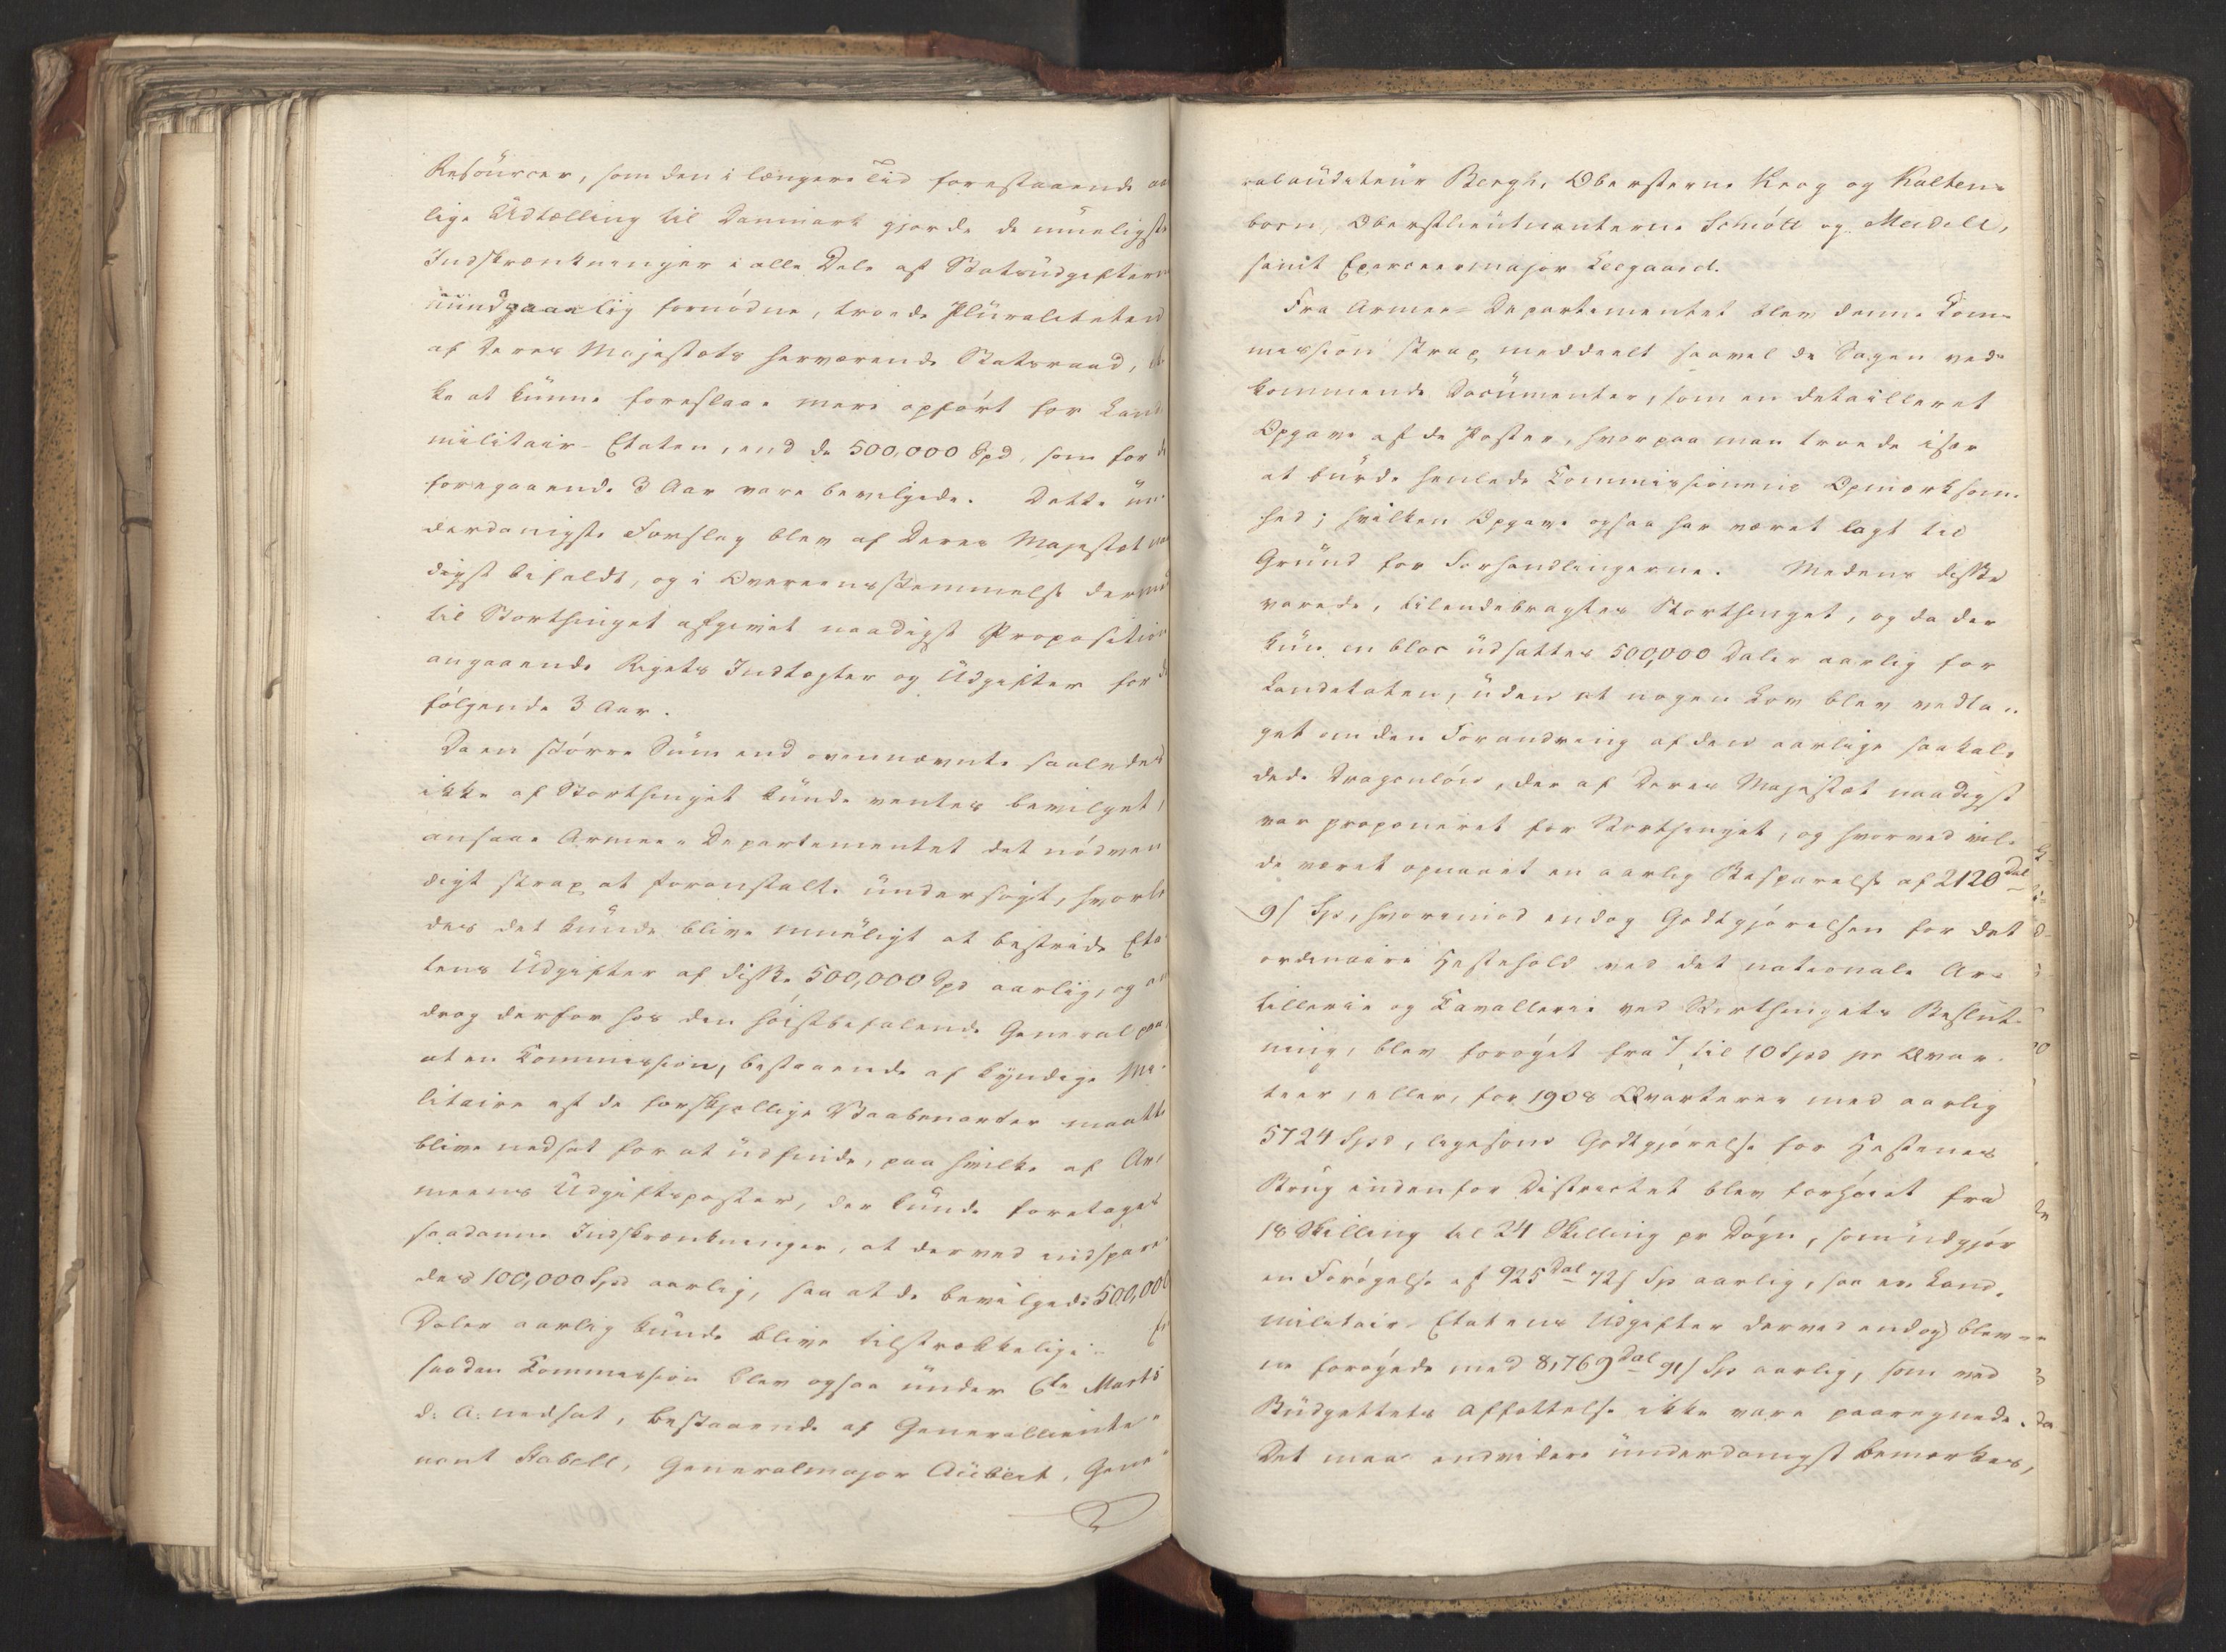 Resourcer, som den i længere Tid forestaaende aar
lige Udtælling til Danmark gjorde de mueligste
Indskrænkninger i alle Dele af Statsudgifterne
uundgaaelig fornødne, troede Pluraliteten
af Deres Majestæts herværende Statsraad, ik
ke at kunne foreslaae mere opført for Land
militair-Etaten, end de 500,000 Spd, som for de
foregaaende 3 Aar vare bevilgede. Dette un
derdanigste Forslag blev af Deres Majestæt naa
digst bifaldt, og i Overeensstemmelse dermed
til Storthinget afgivet naadigst Proposition
angaaende Rigets Indtægter og Udgifter for de
følgende 3 Aar.
Da en større Sum end ovennævnte saaledes
ikke af Storthinget kunde ventes bevilget,
ansaae Armee-Departementet det nødven
digt strax at foranstalte undersøgt, hvorle
des det kunde blive mueligt at bestride Eta
tens Udgifter af disse 500,000 Spd aarlig, og an
drog derfor hos den høistbefalende General paa,
at en Commission, bestaaende af kyndige Mi
litaire af de forskjellige Vaabenarter maatte
blive nedsat for at udfinde, paa hvilke af Ar
meens Udgiftsposter, der kunde foretages
saadanne Indskrænkninger, at derved indspare
des 100,000 Spd aarlig, saa at de bevilgede 500,000
Daler aarlig kunde blive tilstrækkelige. En
saadan Commission blev ogsaa under 6te Marts
d: A: nedsat, bestaaende af Generallieute
nant Stabell, Generalmajor Aubert, Gene
ralauditeur Bergh, Obersterne Krog og Kalten-
born, Oberstlieutnanterne Schiøtt og Meidell,
samt Exerceermajor Leegaard.
Fra Armee-Departementet blev denne Com-
mission strax meddeelt saavel de Sagen ved-
kommende Documenter, som en detailleret
Opgave af de Poster, hvorpaa man troede især
at burde henlede Commissionens Opmærksom-
hed; hvilken Opgave ogsaa har været lagt til
Grund for Forhandlingerne. Medens disse
varede, tilendebragtes Storthinget, og da der
kun en bloc udsattes 500,000 Daler aarlig for
Landetaten, uden at nogen Lov blev vedta-
get om den Forandring af den aarlige saakal-
dede Dragonløn, der af Deres Majestæt naadigst
var proponeret for Storthinget, og hvorved vil-
de været opnaaet en aarlig Besparelse af 2120 Dal
91 Sp, hvorimod endog Godtgjørelsen for det
ordinaire Hestehold ved det nationale Ar-
tillerie og Cavallerie ved Storthingets Beslut-
ning, blev forøget fra 7 til 10 Spd pr Qvar-
teer, eller, for 1908 Qvarterer med aarlig
5724 Spd, ligesom Godtgjørelse for Hestenes
Brug indenfor Districtet blev forhøiet fra
18 Skilling til 24 Skilling pr Døgn, som udgjør
en Forøgelse af 925 Dal 72 s Sp aarlig, saa at Land-
militair-Etatens Udgifter derved endog bleve
ne forøgede med 8,769 Dal 91 s Sp aarlig, som ved
Budgettets Affattelse ikke vare paaregnede.
Det maa endvidere underdanigst bemærkes,